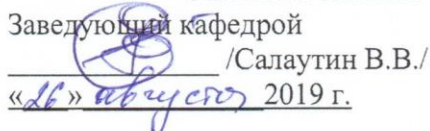 Заведующий кафедрой
/Салаутин В.В./
«26» августа 2019 г.